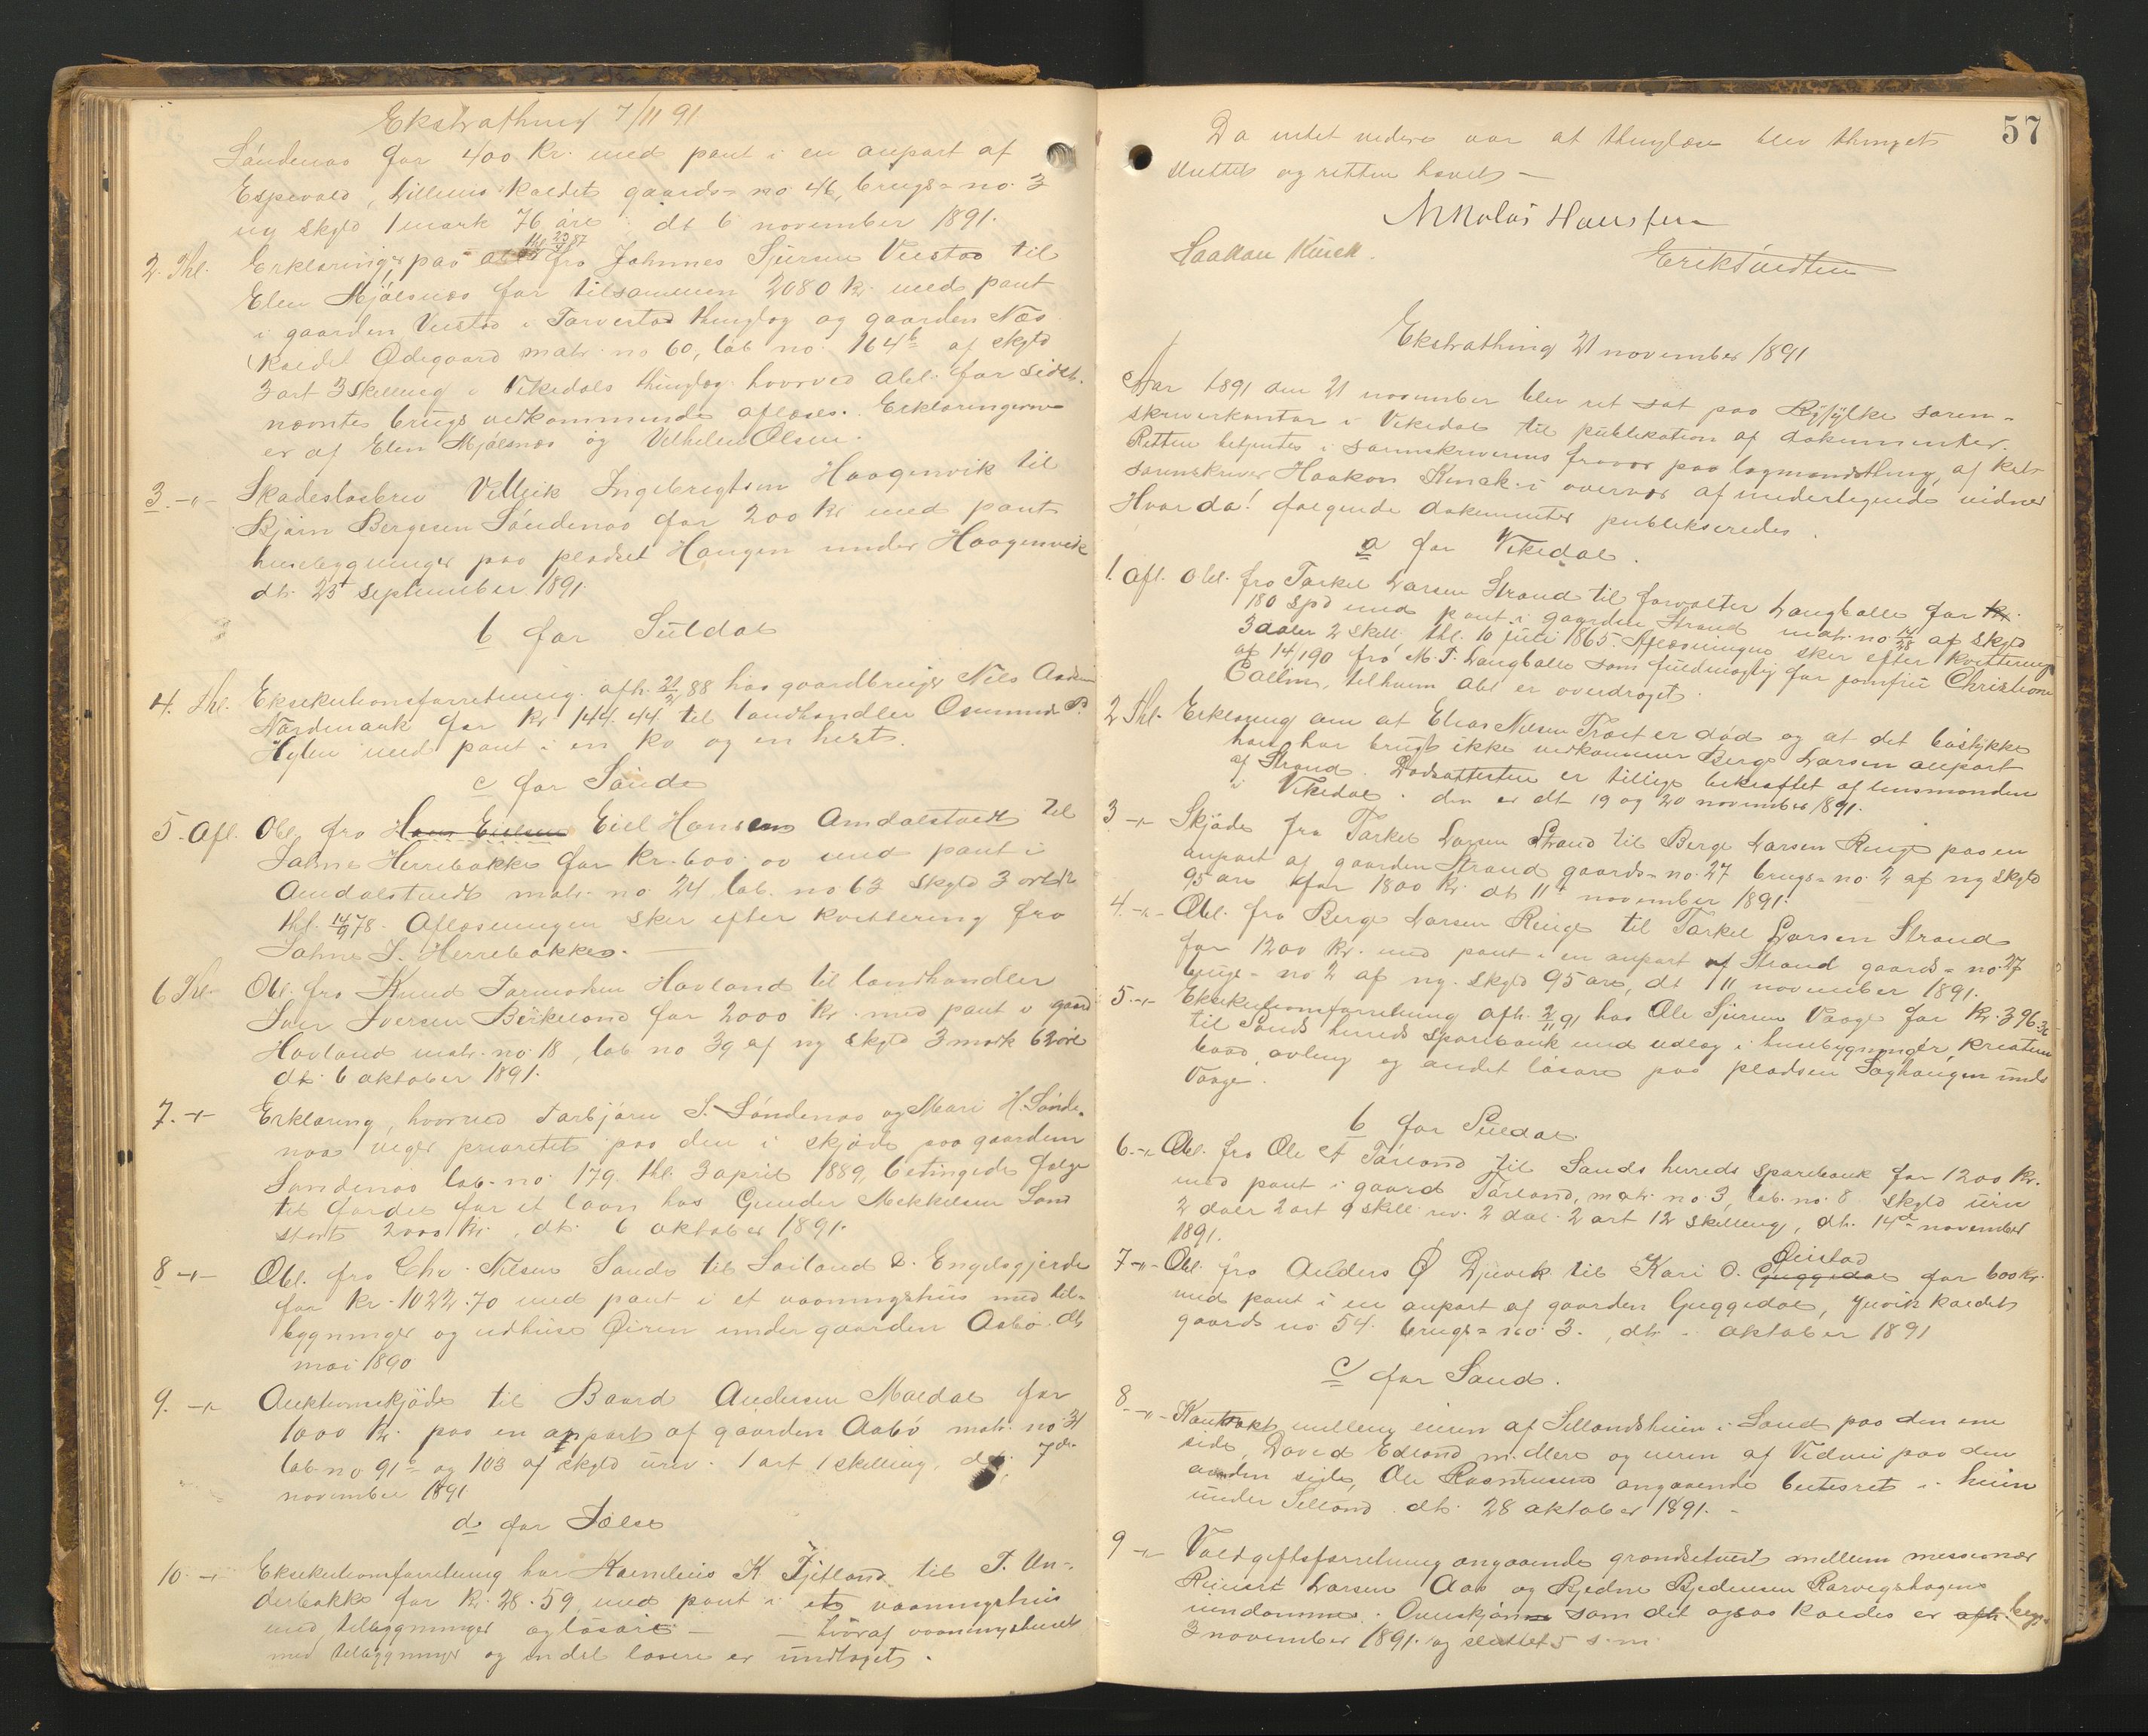 Ekstrathing 7/11 91
Söndenaa for 400 Kr. med pant i en anpart af
Espevold, Lillemo kaldet gaards=no 46, brugs=no. 3
ny skyld 1 mark 76 öre dt 6 november 1891.
2. Thl. Erklæringer paa obl. fra Johannes Sjursen Vestad til
thl. 23/9 87
Elen Mjølsnæs for tilsammen 2080 Kr. med pant
i gaarden Vestad i Torvestad thinglag og gaarden Næs
kaldet Ødegaard matr. no 60, lab no. 164b af skyld
3 ort 3 skilling i Vikedals thinglag hvorved obl. for sidst-
nævnte brugs vedkommende aflæses. Erklæringerne
er af Elen Mjølsnæs og Vilhelm Olsen.
3. -"- Skadesløsbrev Velleik Ingebregtsen Haagenvik til
Björn Bergesen Söndenaa for 200 Kr med pant
husebygninger paa pladset Haugen under Haagenvik
dt. 25t september 1891.
b for Suldal
4. Thl. Eksekutionsforretning afh. 21/3 88 hos gaardbruger Nils
Nordmark for Kr 144.44 til landhandler Osmund P.
Hylen med pant i en ko og en hest.
c for Sand
5. Afl. Obl. fra Hans Eielsen Eiel Hansen Amdalstvedt til
Herrebakke for Kr. 600.00 med pant i
Amdalstvedt matr. no 24 lab. no 63 skyld 3 ort 12
thl. 14/9 78. Aflæsningen sker efter kvittering fra
Herrebakke.
6 Thl. Obl. fra Knud Tormodsen Havland til landhandler
Iver Iversen Birkeland for 2000 Kr. med pant i gaard
Havland matr. no. 18, lab no 39 af ny skyld 3 mark 62 öre
dt. 6 oktober 1891.
7. -"- Erklæring, hvorved Torbjörn S. Söndenaa og Mari H. Sönde-
naa viger prioritet paa den i skjöde paa gaarden
Sandenaa lab. no. 179. thl. 3 april 1889, betingede folge
til fordel for et laan hos Gunder Mekkelsen Sand
stort 2000 Kr. dt. 6 oktober 1891.
8 -"- Obl. fra Chr. Nilsen Sand til Soiland & Engelsgjerde
for Kr. 1022.70 med pant i et vaaningshus med til-
bygninger og udhuse Øiren under gaarden Aabö dt
mai 1890
9. -"- Auktionsskjöde til Baard Andersen Moldal for
1000 Kr. paa en anpart af gaarden Aabö matr. no 31
lab. no 91b og 103 af skyld urev. 1 ort 1 skilling. dt. 7de
november 1891
d for Jelse
10. -"- Eksekutionsforretning hos Kornelius K Tjetland til T. Un-
derbakke for Kr. 28.59 med pant i et vaaningshus
med tilbygninger og lösöre — hvoraf vaaningshuset
med tilbygninger og en del lösöre er undtaget.
57
Da intet videre var at thinglæse blev thinget
sluttet og retten hævet —
Nikolai Hansen
Haakon Kinck.
Erik Sundten
Ekstrathing 21 november 1891
Aar 1891 den 21 november blev ret sat paa Ryfylke soren-
skriverkontor i Vikedal til publikation af dokumenter.
Retten betjentes i sorenskriverens fravær paa lagmandsthing, af kst.
sorenskriver Haakon Kinck i overvær af undertegnede vidner
Hvorda! folgende dokumenter publiseredes.
a for Vikedal.
1. Afl. Obl. fra Torkel Larsen Strand til forvalter Langballe for Kr.
180 spd med pant i gaarden Strand matr. no. 14/28 af skyld
3 daler 2 skill. thl. 10 juli 1865. Aflæsningen sker efter kvittering
af 14/1 90 fra M. T. Langballe som fuldmægtig for jomfru Christiane
Callin, til hvem obl er overdraget.
2 Thl. Erklæring om at Elias Nilsen Træet er död og at det böstykke
han har brugt ikke vedkommer Berge Larsen anpart
af Strand. Dodsattesten er tillige bekræftet af lensmanden
i Vikedal. den er dt. 19 og 20 november 1891.
3 -"- Skjöde fra Torkel Larsen Strand til Berge Larsen Ringe paa en
anpart af gaarden Strand gaards=no. 27 brugs=no. 2 af ny skyld
95 öre for 1800 Kr. dt. 11t november 1891.
4. -"- Obl. fra Berge Larsen Ringe til Torkel Larsen Strand
for 1200 Kr. med pant i en anpart af Strand gaards=no. 27
brugs=no 2 af ny. skyld 95 öre, dt. 11 november 1891.
5. -"- Eksekutionsforretning afh. 2/11 91 hos Ole Sjursen Vaage for Kr. 396.36
til Sands herreds sparebank med udlæg i husebygninger, kreaturer
baad avling og andet lösöre paa pladsen Saghaugen under
Vaage.
b for Suldal
6. -"- Obl. fra Ole A Tarland til Sands herreds sparebank for 1200 Kr.
med pant i gaard Tarland, matr. no. 3, lab. no. 8. skyld urev
2 daler 2 ort 9 skill. rev. 2 dal. 2 ort 12 skilling, dt. 14de november
1891.
7 -"- Obl. fra Anders Ø Djuvik til Kari O. Guggedal Øistad for 600 Kr.
med pant i en anpart af gaarden Guggedal, kaldet
gaards no 54. brugs=no. 3., dt. - oktober 1891
c for Sand.
8. -"- Kontrakt mellem eieren af Sellandsheien i Sand paa den ene
side, David Edland m. flere og eieren af Vidvei paa den
anden side, Ole Rasmussen angaaende beitesret i heien
under Selland. dt. 28 oktober 1891.
9 -"- Voldgiftsforretning angaaende grændsetvist mellem missionær
Larsen Aas og Bjedne Bjednesen Rarvegshagens
eiendomme. Overskjönn som det ogsaa kaldes er afh. beg.
3 november 1891. og sluttet 5 s.m.